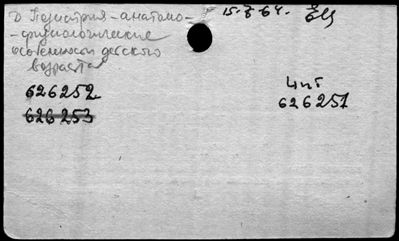 Д Педиатрия - анатомо-
- физиологические
особенности детского
возраста
15.8.64. Ец
626252
626253
чит
626251